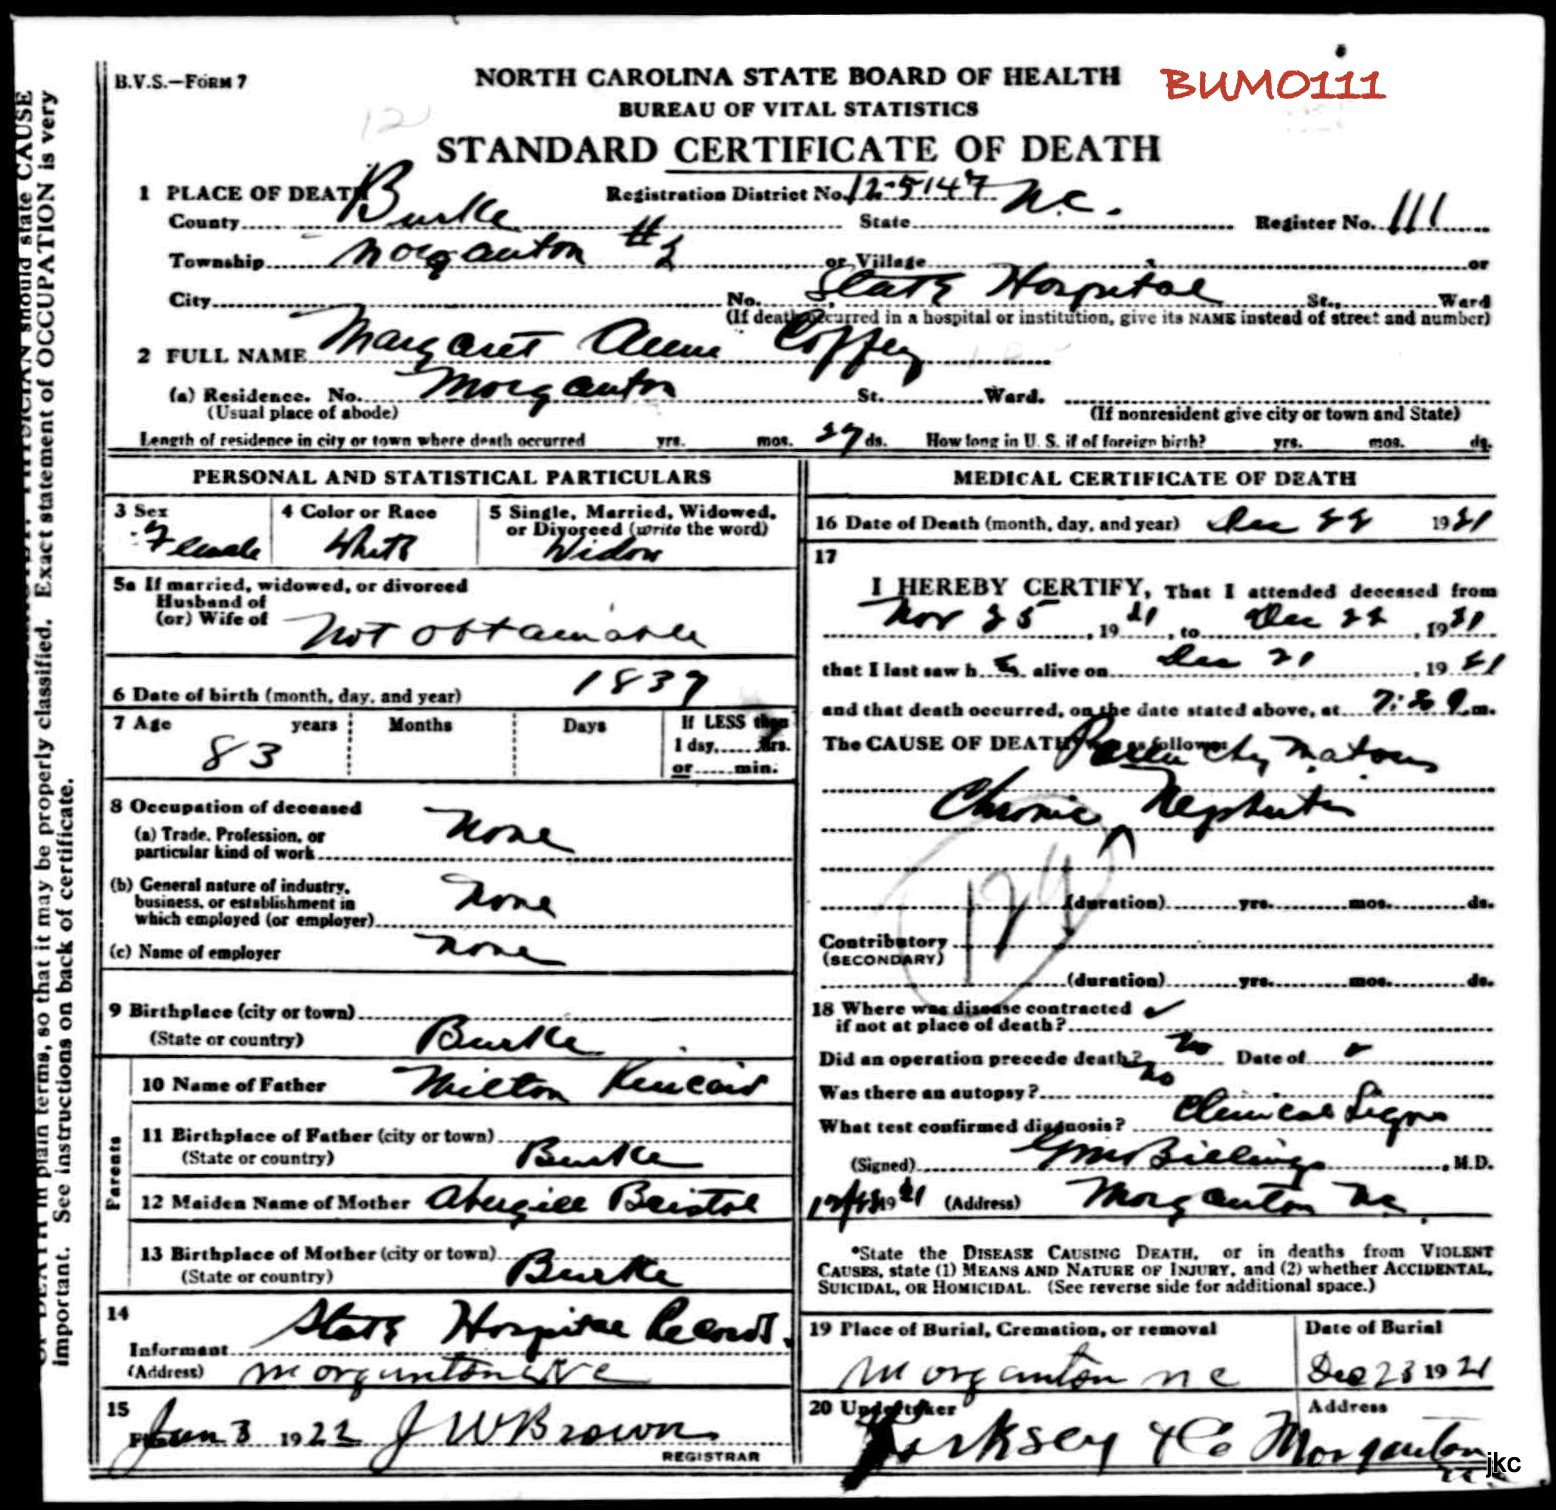 B.V.S.—FORM 7
NORTH CAROLINA STATE BOARD OF HEALTH
BUMO111
BUREAU OF VITAL STATISTICS
12
STANDARD CERTIFICATE OF DEATH
1 PLACE OF DEATH Registration District No. 12-5147
County Burke State N.C. Register No. 111
Township Morganton #2 or Village or
City No. State Hospital St., Ward
(If death occurred in a hospital or institution, give its NAME instead of street and number)
2 FULL NAME Margaret Anne Coffey
(a) Residence. No. Morganton St. Ward.
(Usual place of abode) (If nonresident give city or town and State)
Length of residence in city or town where death occurred yrs. mos. 27 ds. How long in U. S. if of foreign birth? yrs. mos. ds.
PERSONAL AND STATISTICAL PARTICULARS
3 Sex Female
4 Color or Race White
5 Single, Married, Widowed,
or Divorced (write the word)
Widow
5a If married, widowed, or divorced
Husband of
(or) Wife of Not obtainable
6 Date of birth (month, day, and year) 1837
7 Age years Months Days If LESS than
83 1 day, hrs.
or min.
8 Occupation of deceased
(a) Trade, Profession, or
particular kind of work None
(b) General nature of industry,
business, or establishment in
which employed (or employer) None
(c) Name of employer None
9 Birthplace (city or town)
(State or country) Burke
Parents
10 Name of Father Milton Kincaid
11 Birthplace of Father (city or town)
(State or country) Burke
12 Maiden Name of Mother Abergill Bristol
13 Birthplace of Mother (city or town)
(State or country) Burke
14
Informant State Hospital Records.
(Address) Morganton NC
15
Jan 3 1922 J W Brown
REGISTRAR
MEDICAL CERTIFICATE OF DEATH
16 Date of Death (month, day, and year) Dec 22 1921
17
I HEREBY CERTIFY, That I attended deceased from
Nov 25, 1921, to Dec 22, 1921
that I last saw h alive on Dec 21, 1921
and that death occurred, on the date stated above, at 7:20 m.
The CAUSE OF DEATH was as follows: Parenchymatous
Chronic Nephritis
129
(duration) yrs. mos. ds.
Contributory
(SECONDARY)
(duration) yrs. mos. ds.
18 Where was disease contracted ✓
if not at place of death?
Did an operation precede death? No Date of ✓
Was there an autopsy? No
What test confirmed diagnosis? Clinical Signs
(Signed) Billings, M.D.
1921 (Address) Morganton NC.
*State the DISEASE CAUSING DEATH, or in deaths from VIOLENT
CAUSES, state (1) MEANS AND NATURE OF INJURY, and (2) whether ACCIDENTAL,
SUICIDAL, OR HOMICIDAL. (See reverse side for additional space.)
19 Place of Burial, Cremation, or removal Date of Burial
Morganton NC Dec 23 1921
20 Undertaker Address
Kirksey & Co Morganton
jkc
should state CAUSE
Exact statement of OCCUPATION is very
OF DEATH in plain terms, so that it may be properly classified.
important. See instructions on back of certificate.